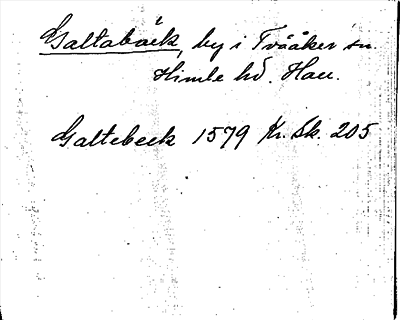 Galtabäck, by i Tvååker sn.
Himle hd. Hall.
Galtebeck 1579 Kr. Sk. 205